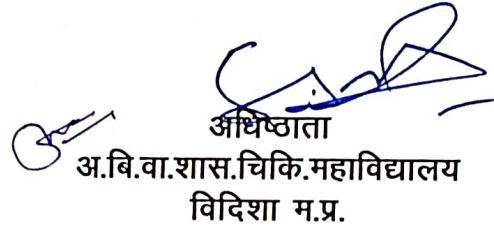 अधिष्ठाता
अ.बि.वा.शास.चिकि.महाविद्यालय
विदिशा म.प्र.